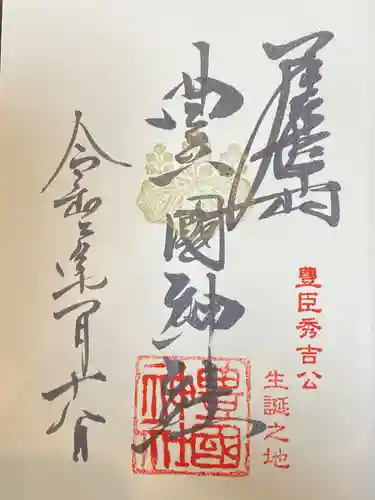 奉拝
豊臣秀吉公
生誕之地
豊國神社
豊國神社
令和三年一月十八日